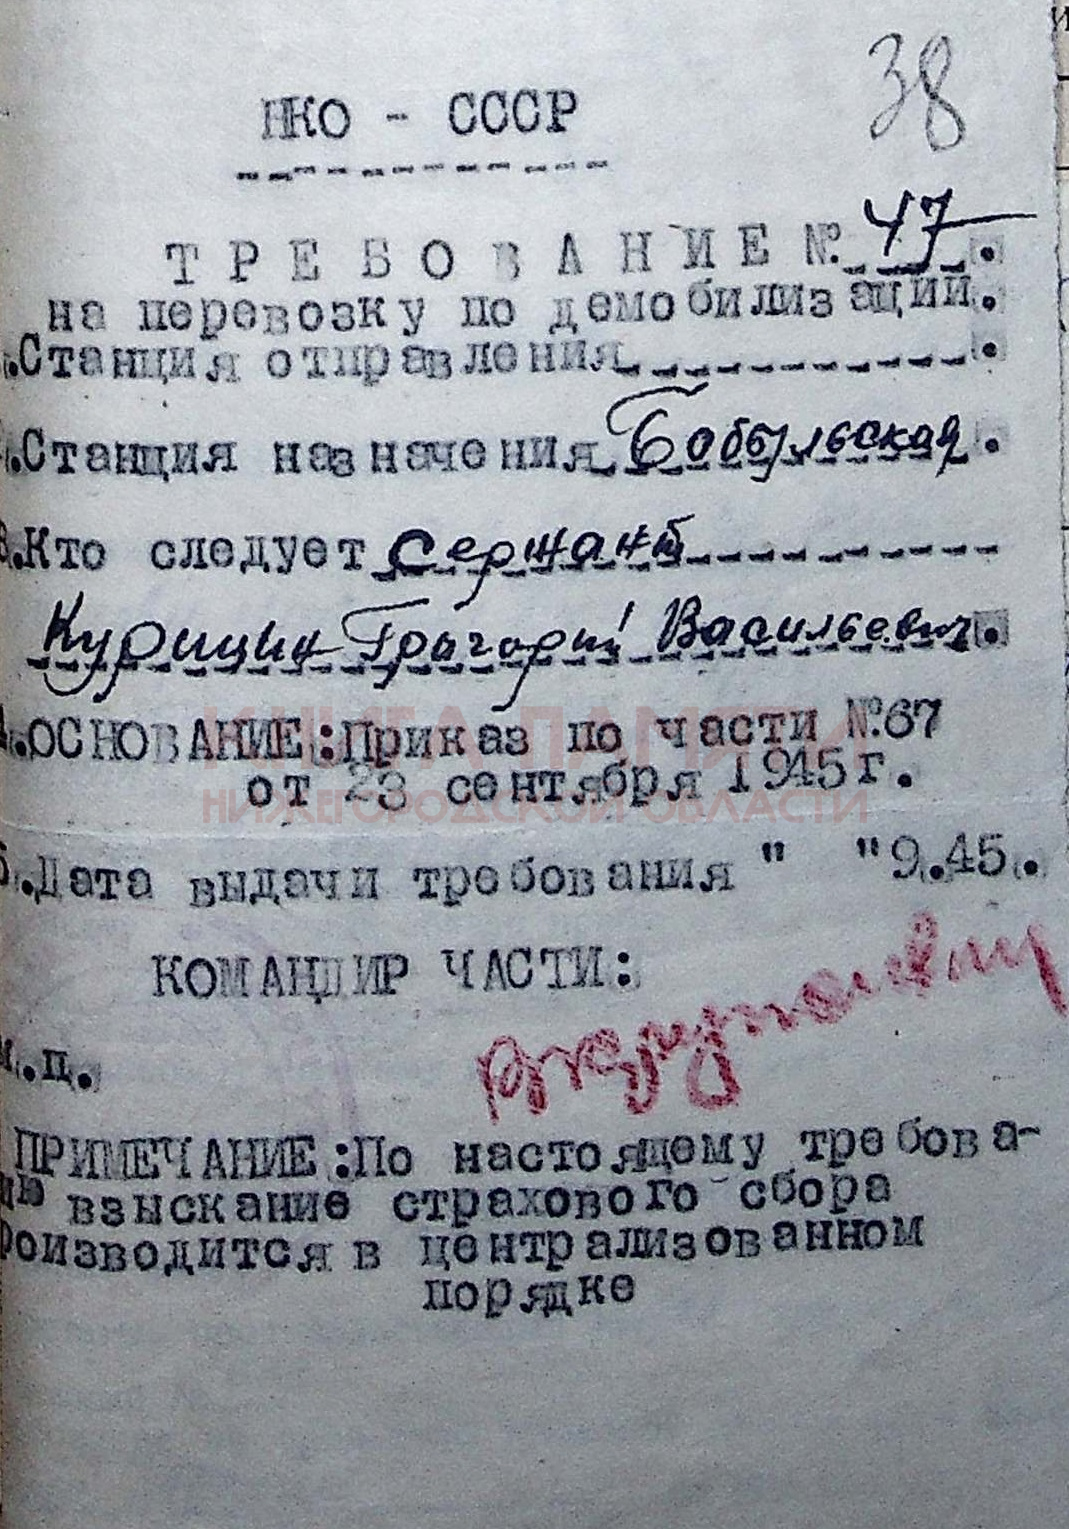 38
НКО - СССР
ТРЕБОВАНИЕ №. 47.
на перевозку по демобилизации.
.Станция отправления.
.Станция назначения Бобыльская.
3.Кто следует Сержант
Курицин Григорий Васильевич.
.ОСНОВАНИЕ:Приказ по части №.67
от 23 сентября 1945г.
КНИГА ПАМЯТИ
НИЖЕГОРОДСКОЙ ОБЛАСТИ
5.Дата выдачи требования " "9.45.
КОМАНДИР ЧАСТИ:
м.п.
ПРИМЕЧАНИЕ:По настоящему требова-
нию взыскание страхового сбора
роизводится в централизованном
порядке